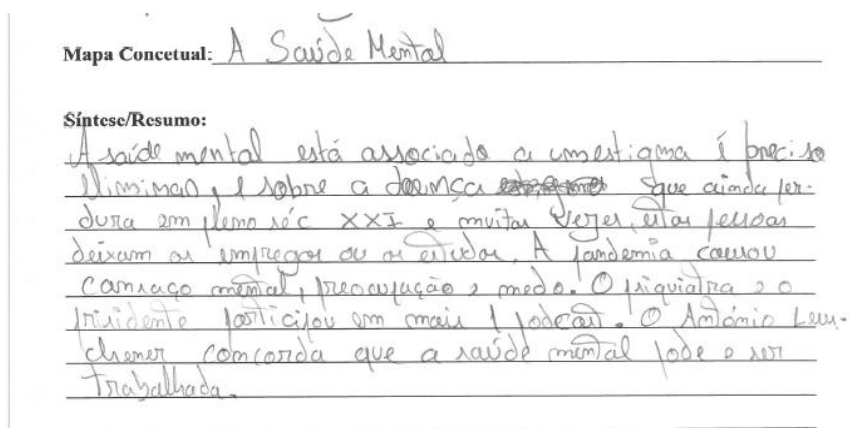 Mapa Concetual: A Saúde Mental
Síntese/Resumo:
A saíde mental está associado a um estigma é preciso
eliminar, e sobre a doença que ainda per-
dura em pleno séc XXI e muitas vezes, estas pessoas
deixam os empregos ou os estudos. A pandemia causou
cansaço mental, preocupação e medo. O psiquiatra e o
presidente participou em mais 1 podcast. O António Leu-
chener concorda que a saúde mental pode e ser
trabalhada.